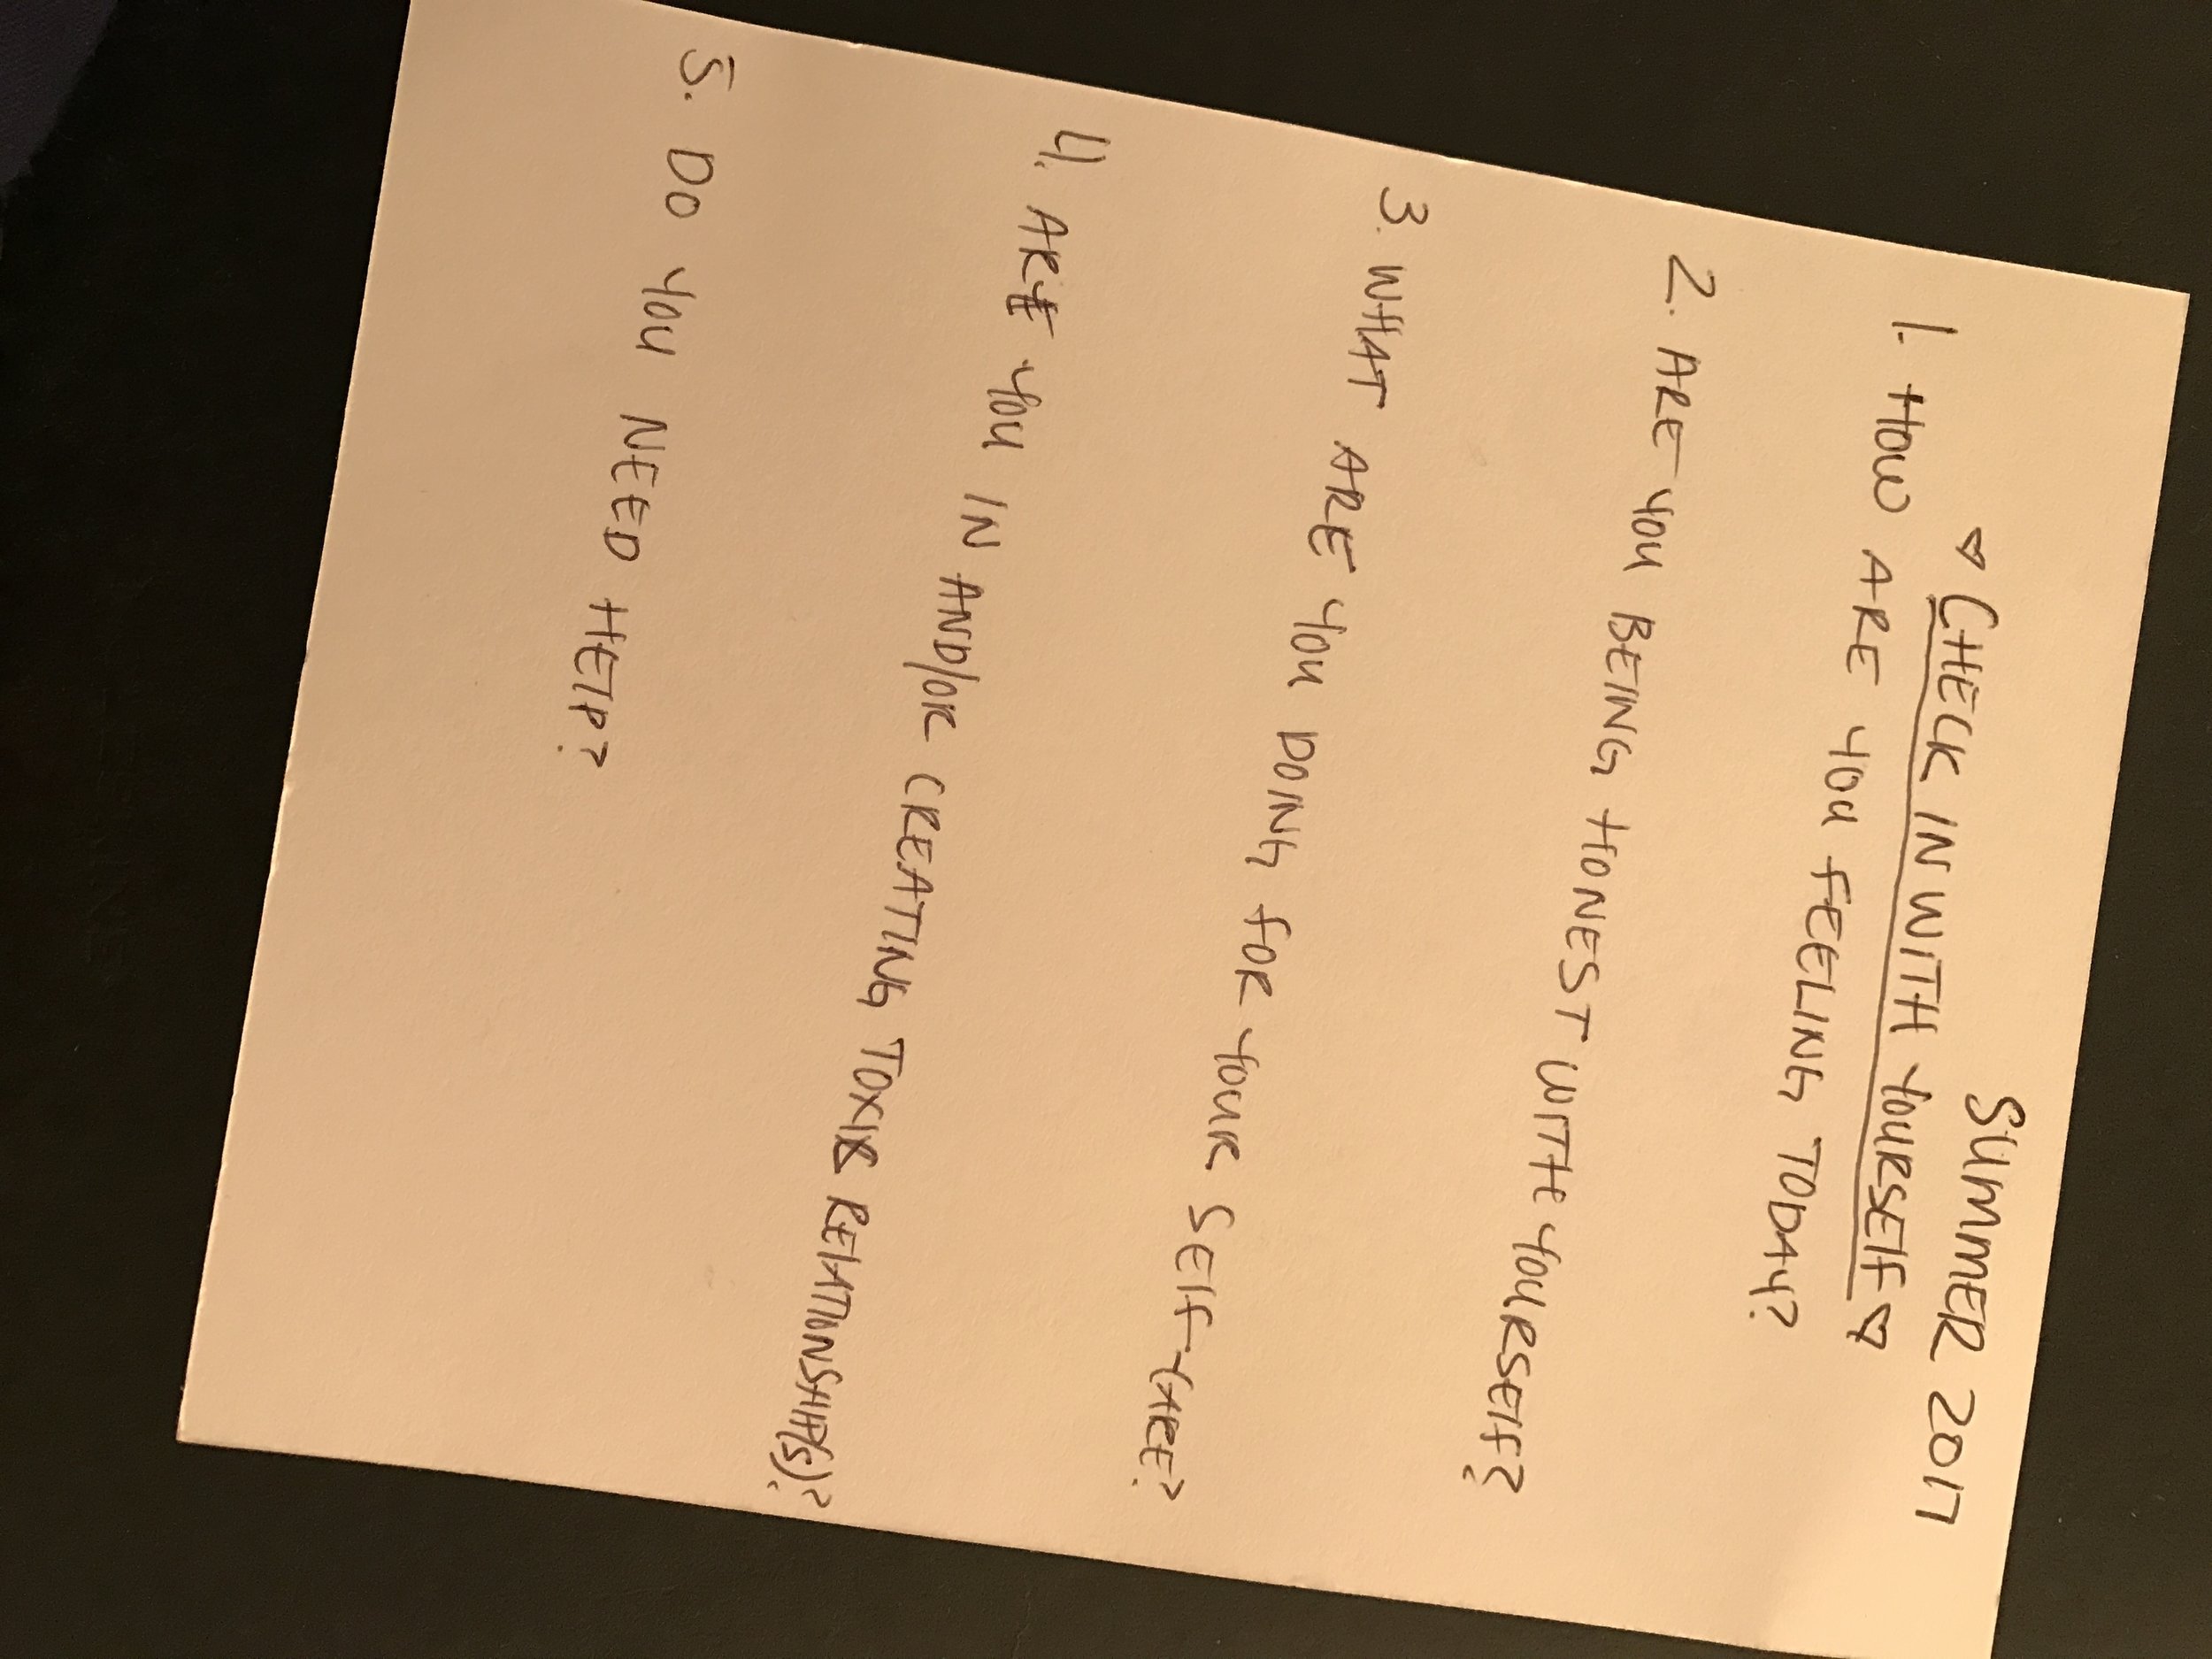 SUMMER 2017
♡ CHECK IN WITH YOURSELF ♡
1. HOW ARE YOU FEELING TODAY?
2. ARE YOU BEING HONEST WITH YOURSELF?
3. WHAT ARE YOU DOING FOR YOUR SELF-CARE?
4. ARE YOU IN AND/OR CREATING TOXIC RELATIONSHIP(S)?
5. DO YOU NEED HELP?